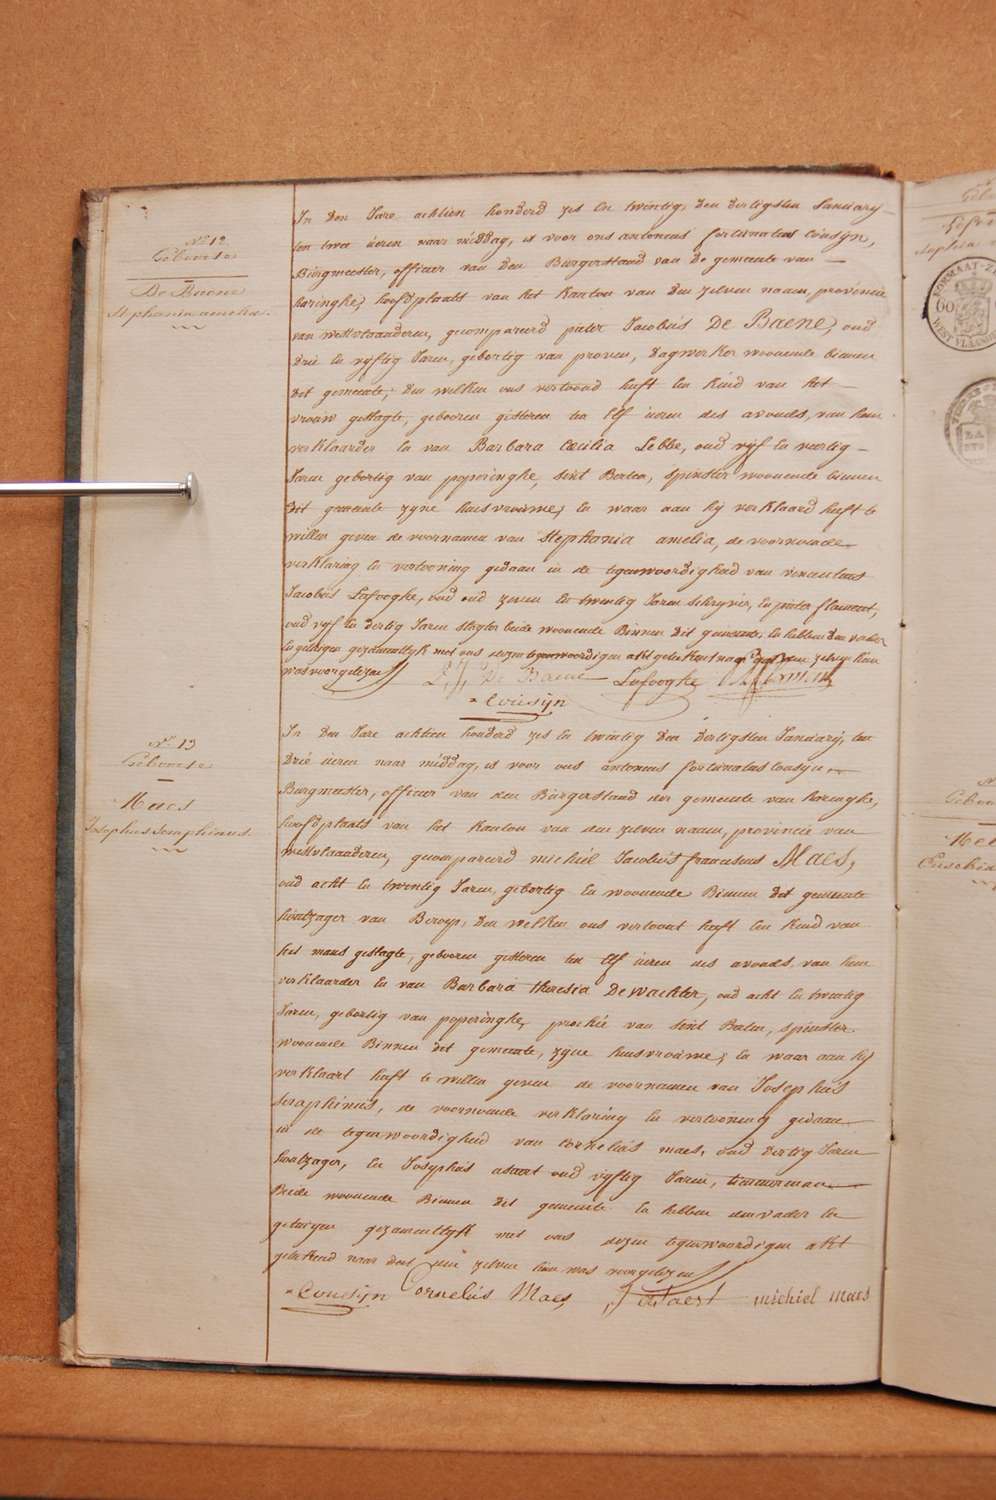 N.º 12
Geboorte
De Baene
Stephania amelia.
In Den Jare achtien honderd zes En twintig, den dertigsten January
ten twee ueren naar middag, is voor ons antonius fortunatus Cousyn,
Burgmeester, officier van den Burgerstand van De gemeente van
haringhe, hoofdplaats van het Kanton van den zelven naam, provincie
van westvlaanderen, gecompareerd pieter Jacobus De Baene, oud
Drie En vyftig Jaren, gebortig van proven, Dagwerker woonende binnen
Dit gemeente; Den welken ons vertoond heeft Een Kind van het
vrouw geslagte, gebooren gisteren ten Elf ueren des avonds, van hem
verklaarder En van Barbara Cæcilia Lebbe, oud vyf En veertig
Jaren gebortig van poperinghe, sint Berten, spinster woonende binnen
Dit gemeente zyne huisvrouwe; En waar aan hy verklaard heeft te
willen geven de voornamen van Stephania amelia, de voornoemde
verklaring En vertooning gedaan in de tegenwoordigheid van vincentius
Jacobus Lafooghe, oud zeven En twintig Jaren schryver, En pieter flament,
oud vyf En dertig Jaren slagter beide woonende Binnen Dit gemeente, En hebben den vader
En getuigen gezamentlyk met ons dezen tegenwoordigen akt geteekent naar dat zelven hun
was voorgelezen
P. J. De Baene Lafooghe
Cousyn
N.º 13
Geboorte
Maes
Josephus seraphinus.
In Den Jare achtien honderd zes En twintig Den Dertigsten January, ten
Drie ueren naar middag, is voor ons antonius fortunatus Cousyn
Burgmeester, officier van den Burgerstand der gemeente van haringhe,
hoofdplaats van het Kanton van den zelven naam, provincie van
westvlaanderen, gecompareerd michiel Jacobus franciscus Maes,
oud acht En twintig Jaren, gebortig En woonende Binnen Dit gemeente
houtzager van Beroep, Den welken ons vertoont heeft Een Kind van
het mans geslagte, gebooren gisteren ten Elf ueren des avonds, van hem
verklaarder En van Barbara Theresia De Wachter, oud acht En twintig
Jaren, gebortig van poperinghe, prochie van sint Berten, spinster
woonende Binnen Dit gemeente, zyne huisvrouwe; En waar aan hy
verklaart heeft te willen geven de voornamen van Josephus
seraphinus, de voornoemde verklaring En vertooning gedaan
in de tegenwoordigheid van Cornelius maes, oud dertig Jaren
houtzager, En Josephus asaert oud vyftig Jaren, timmerman
Beide woonende Binnen Dit gemeente. En hebben den vader En
getuigen gezamentlyk met ons dezen tegenwoordigen akt
geteekend naar dat zelven hun was voorgelezen
Cousyn Cornelis Maes J asaert michiel maes
60
WEST VLAANDEREN